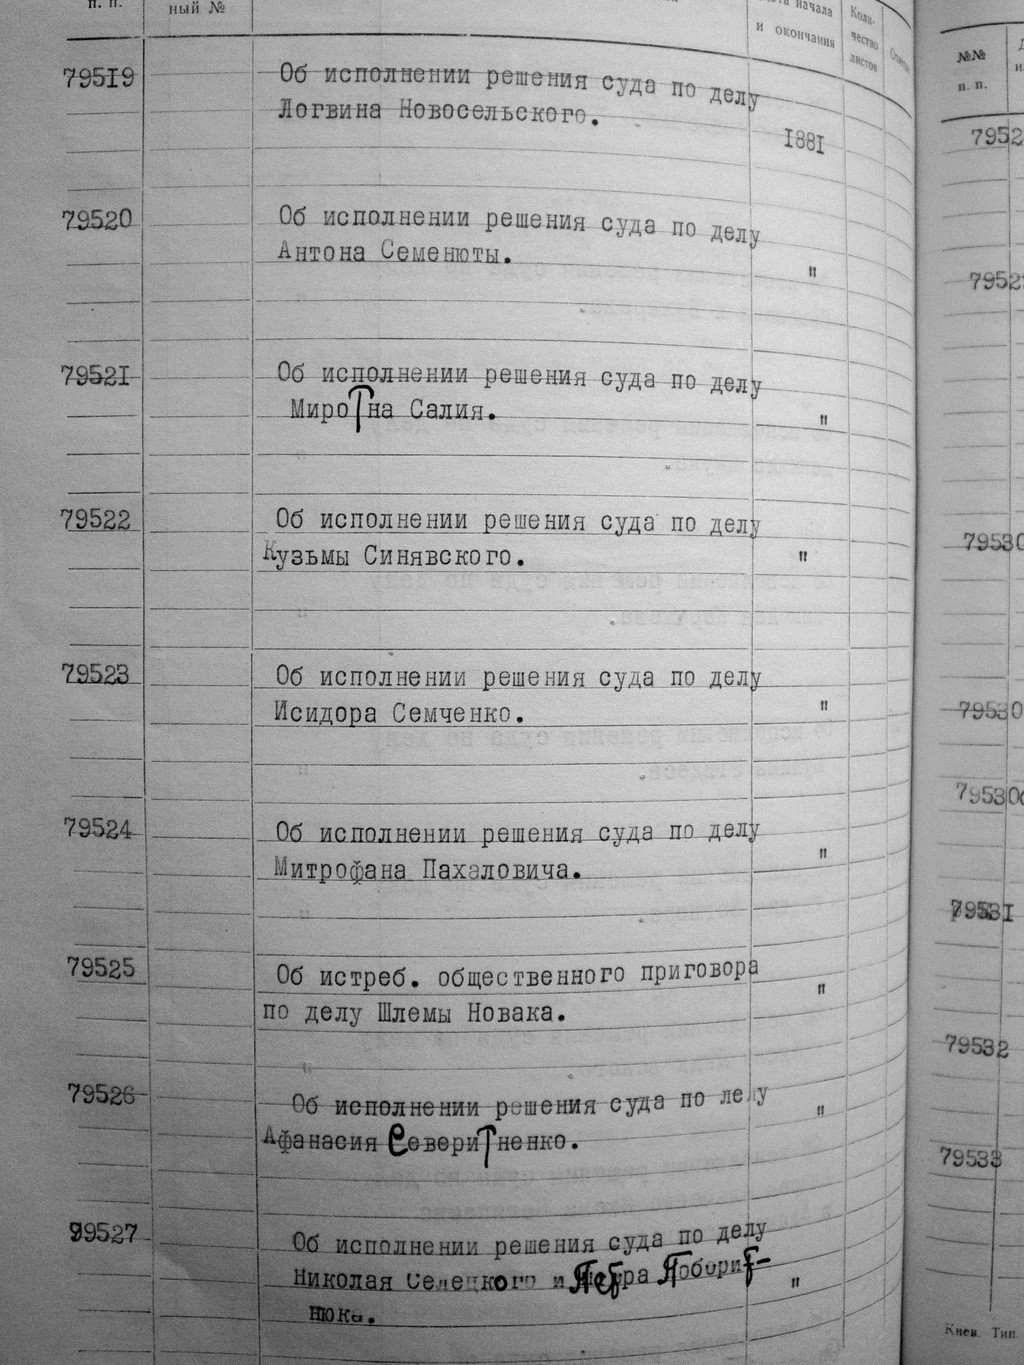 п. п.
ный №
Дата начала
и окончания
Коли-
чество
листов
79519 Об исполнении решения суда по делу
Логвина Новосельского.
1881
79520 Об исполнении решения суда по делу
Антона Семенюты. "
79521 Об исполнении решения суда по делу
Миротна Салия. "
79522 Об исполнении решения суда по делу
Кузьмы Синявского. "
79523 Об исполнении решения суда по делу
Исидора Семченко. "
79524 Об исполнении решения суда по делу
Митрофана Пахаловича. "
79525 Об истреб. общественного приговора
по делу Шлемы Новака. "
79526 Об исполнении решения суда по делу
Афанасия "
79527 Об исполнении решения суда по делу
Николая Селецкого и Петра "
нюка.
№№
п. п.
7952
7952
79530
79530
79530
79531
79532
79533
Киев. Тип.